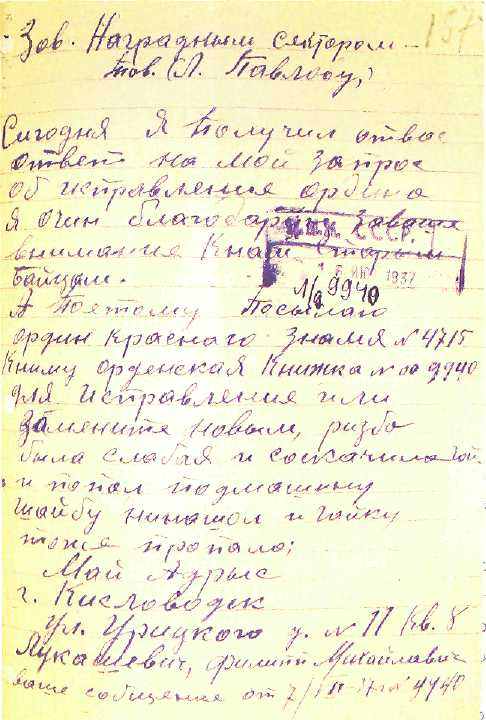 157
Зов. Наградным сектором
тов. (Л. Павлову,)
Сигодня я Получил отвас
ответ на мой запрос
об исправления ордина
я очин благодарен Заваше
внимание Кнам Старым
Байцам.
Ц.И.К. СССР.
ИЮ 1937
№ 9940
А Поетому Посылаю
ордин Краснаго Знамя № 4715
Книму орденская Книжка № 009940
для исправление или
Замените новым, ризба
была слабая и соскачила
и попол подмашину
шайбу нинашол и гайку
тоже пропала;
Май Адрыс
г. Кисловодск
ул. Урицкого д. № 11 кв. 8
Лукашевич, Филипп Михайлович
ваше собщение от 9940